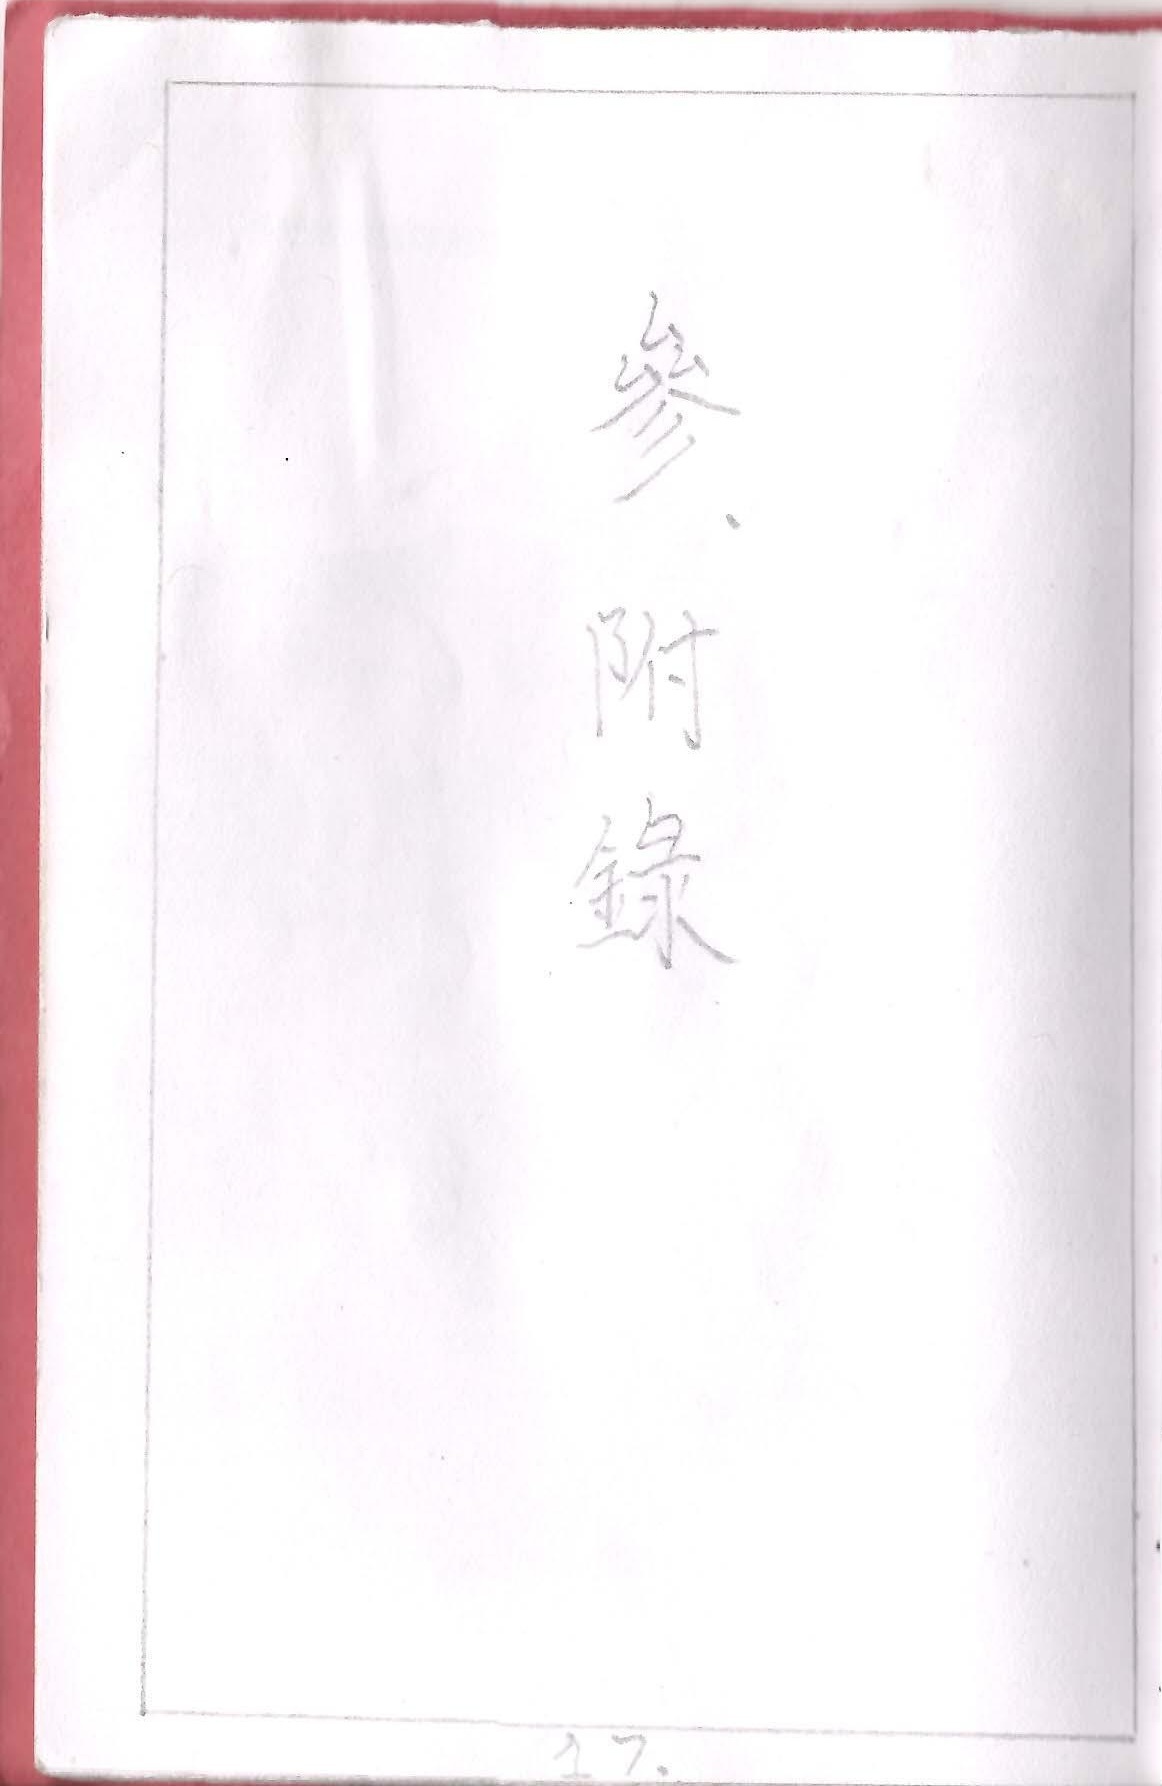 參、附錄
17.